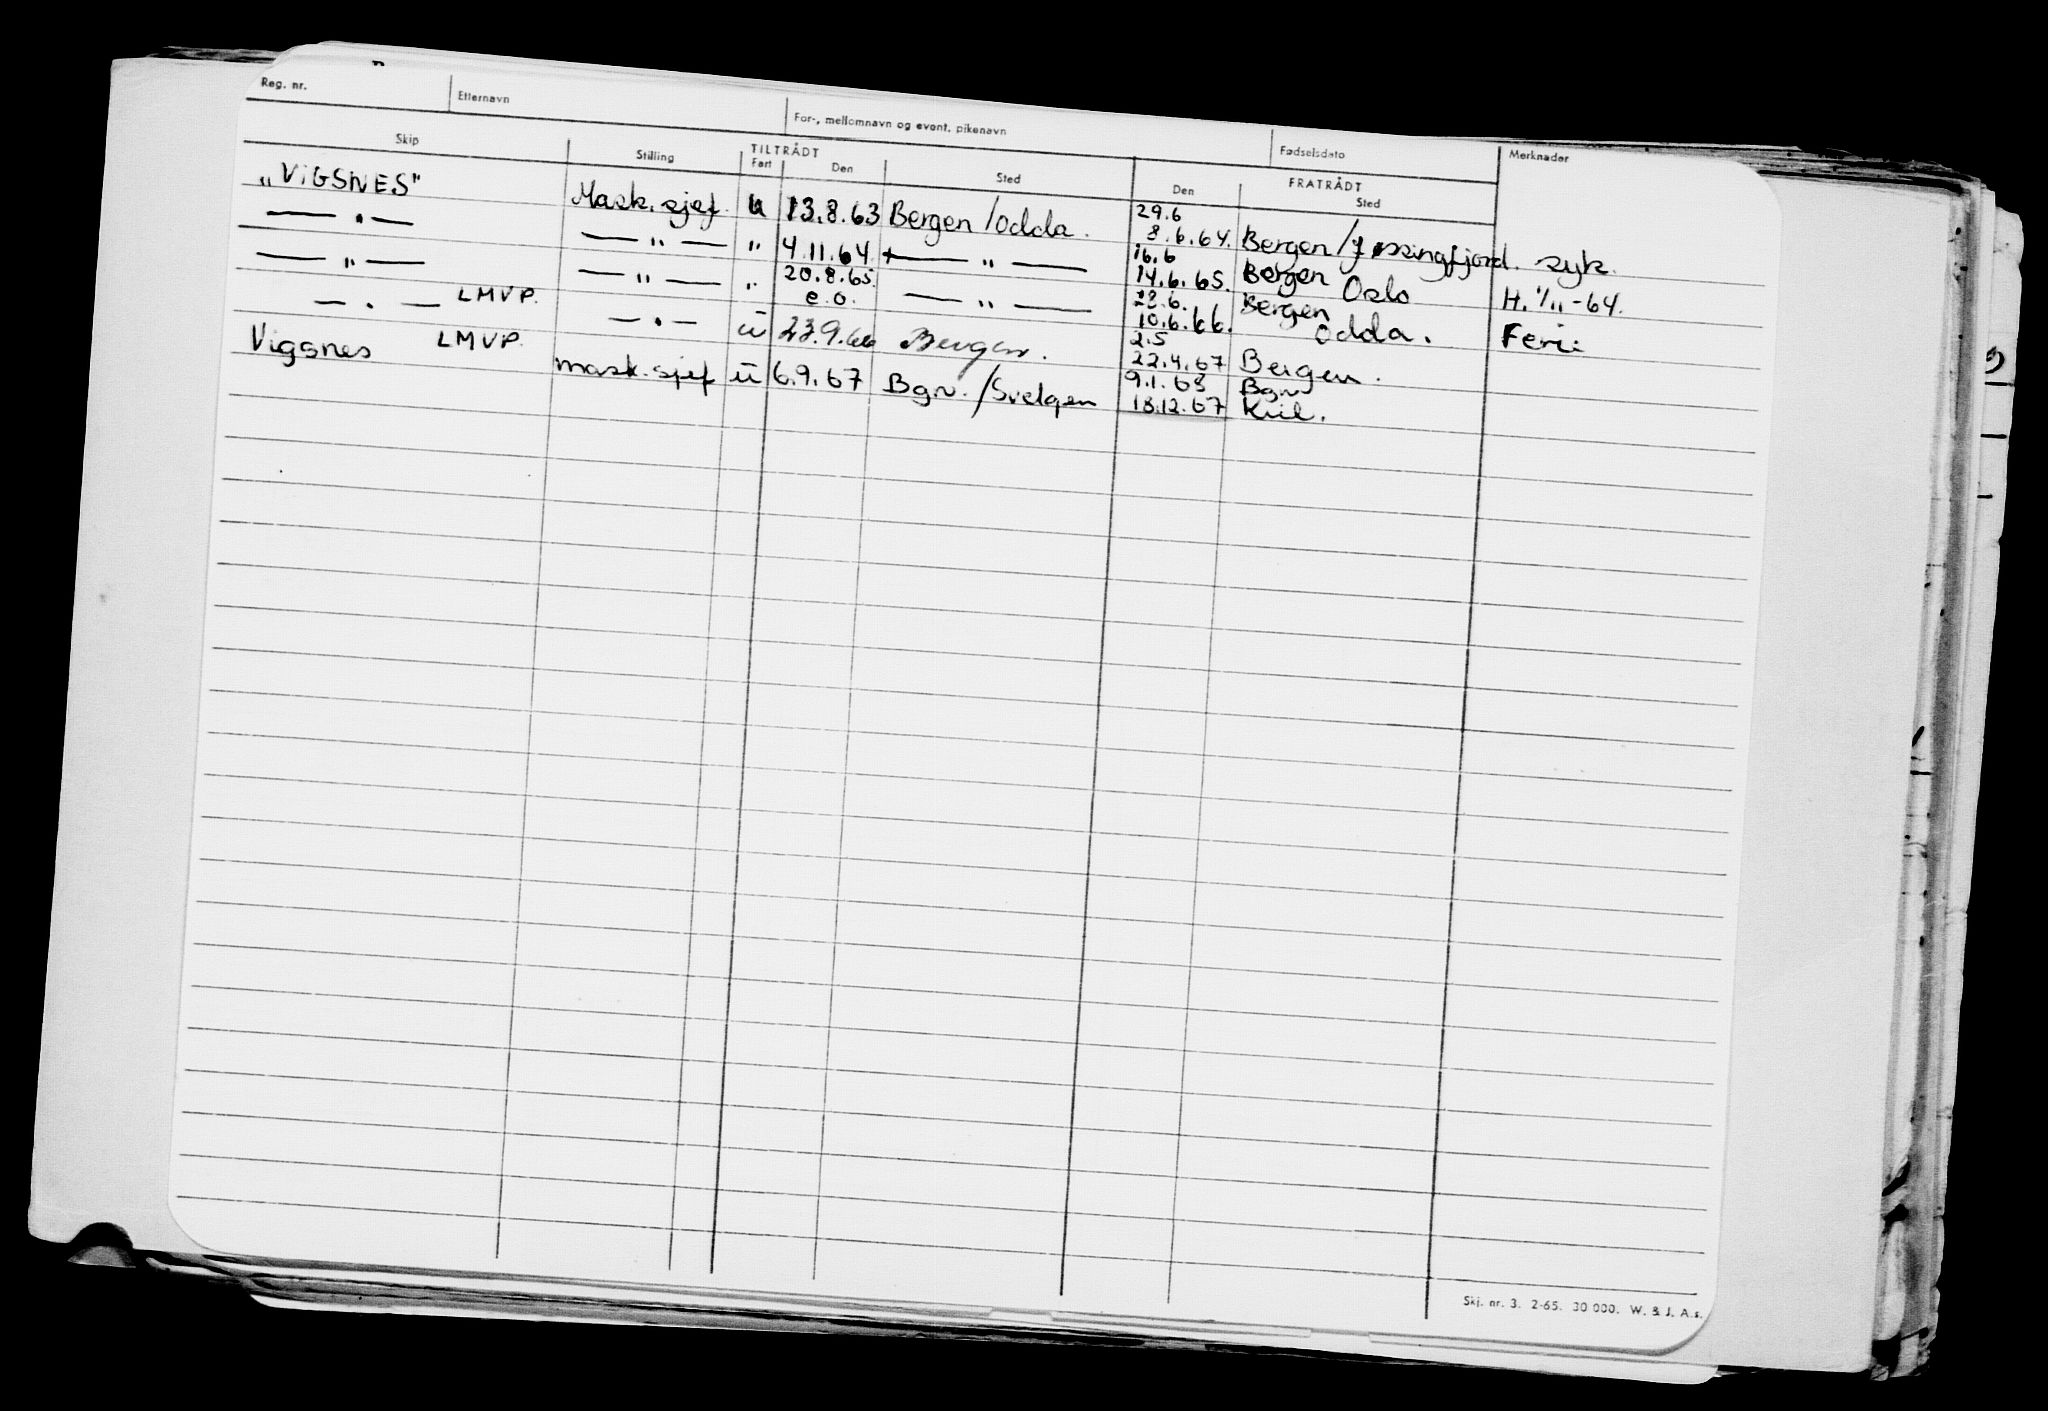 Reg. nr. Etternavn For-, mellomnavn og event. pikenavn Fødselsdato Merknader
Skip Stilling TILTRÅDT FRATRÅDT
Fart Den Sted Den Sted
"VIGSNES" Mask. sjef. u 13.8.63 Bergen/Odda. 29.6 8.6.64. Bergen/Jøssingfjord. syk.
— " — — " — " 4.11.64. — " — 16.6 14.6.65. Bergen Oslo H. 1/11-64.
— " — — " — " 20.8.65. e.o. — " — 23.6. 10.6.66. Bergen Odda. Ferie
— " — LMVP. — " — u 23.9.66 Bergen. 2.5 22.4.67 Bergen.
Vigsnes LMVP. mask. sjef u 6.9.67 Bgn./Svelgen 9.1.68 18.12.67 Bgn Kiel.
Skj. nr. 3. 2-65. 30 000. W. & J. A.s.